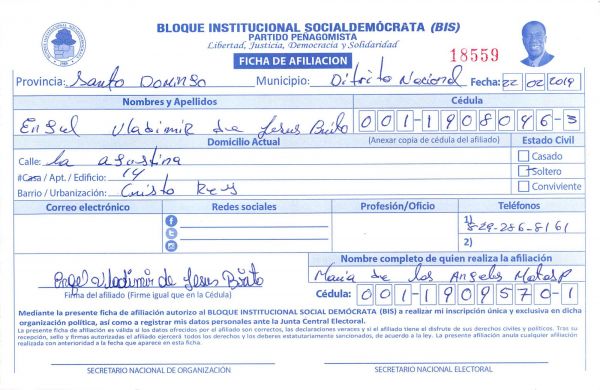 BLOQUE INSTITUCIONAL SOCIALDEMÓCRATA (BIS)
PARTIDO PEÑAGOMISTA
Libertad, Justicia, Democracia y Solidaridad
18559
FICHA DE AFILIACION
Provincia: Santo Domingo Municipio: Ditrito Nacional Fecha: 22 02 2019
Nombres y Apellidos Cédula
Vladimir de Jesus Brito 001-1908096-3
Domicilio Actual (Anexar copia de cédula del afiliado) Estado Civil
Calle: la agustina Casado
#Casa / Apt. / Edificio: 14 Soltero
Barrio / Urbanización: Cristo Rey Conviviente
Correo electrónico Redes sociales Profesión/Oficio Teléfonos
1) 829-286-8161
2)
Nombre completo de quien realiza la afiliación
Engel Vladimir de Jesus Brito Maria de los Angeles Matos P
Firma del afiliado (Firme igual que en la Cédula) Cédula: 001-1909570-1
Mediante la presente ficha de afiliación autorizo al BLOQUE INSTITUCIONAL SOCIAL DEMÓCRATA (BIS) a realizar mi inscripción única y exclusiva en dicha
organización política, así como a registrar mis datos personales ante la Junta Central Electoral.
La presente ficha de afiliación es valida si las datos ofrecidos por el afiliado son correctos, las declaraciones veraces y si el afiliado tiene el disfrute de sus derechos civiles y políticos. Tras su
recepción, sello y firmas autorizadas el afiliado ejercerá todos los derechos y los deberes estatutariamente sancionados, de acuerdo a la ley. La presente afiliación anula cualquier afiliación
realizada con anterioridad a la fecha que aparece en esta ficha.
SECRETARIO NACIONAL DE ORGANIZACIÓN SECRETARIO NACIONAL ELECTORAL